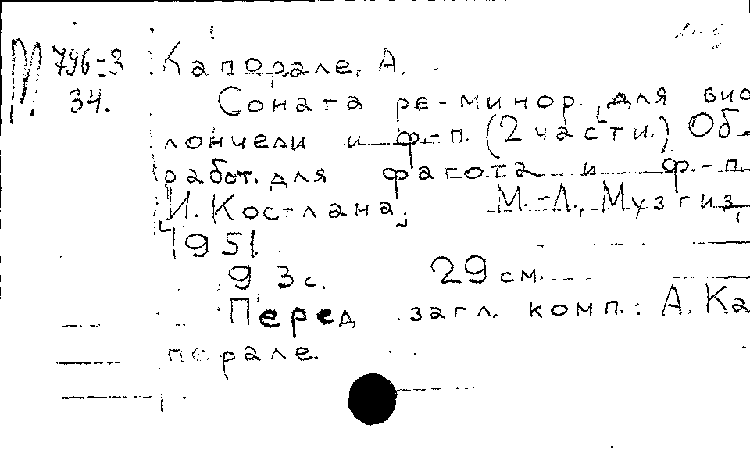 М 796-3 Капорале, А.
34. Соната ре-минор, для вио
лончели и ф-п. (2 части.) Об-
работ. для фагота и ф.-п.
И. Костлана, М.-Л., Музгиз,
1951
93с. 29 см.
Перед загл. комп.: А. Ка
порале.